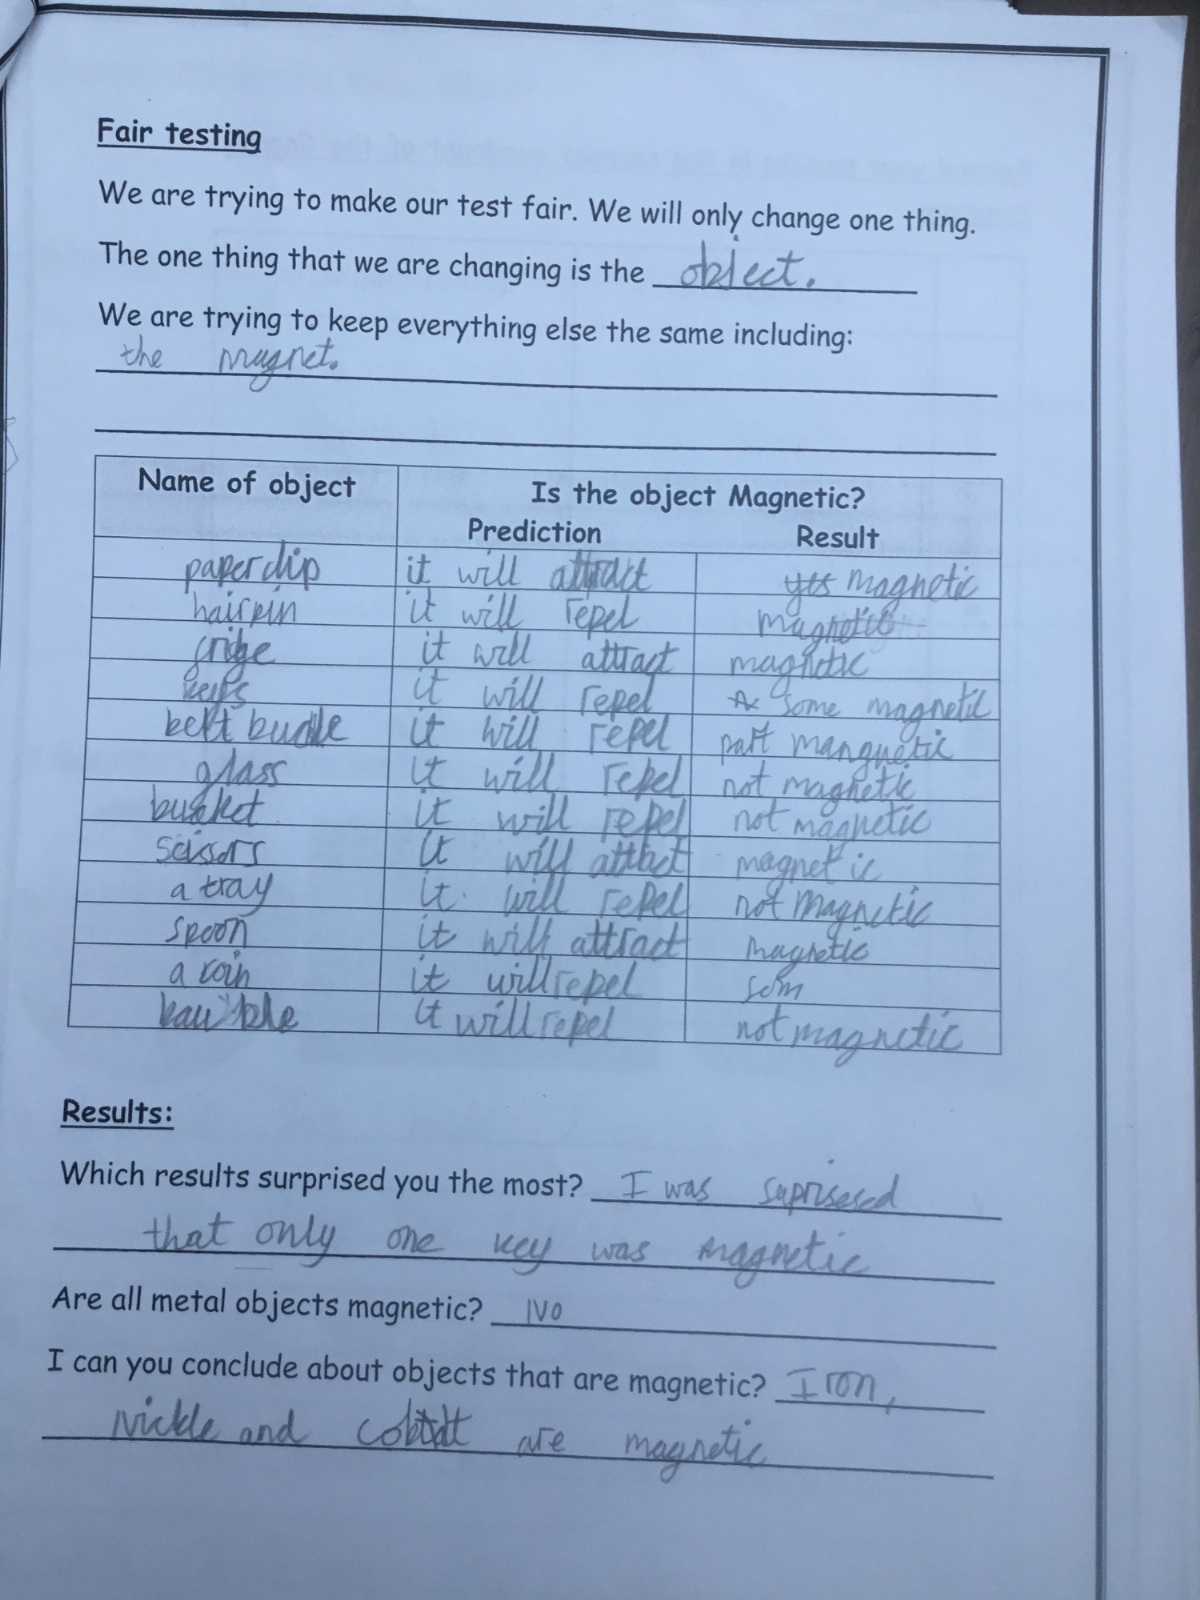 Fair testing
We are trying to make our test fair. We will only change one thing.
The one thing that we are changing is the object.
We are trying to keep everything else the same including:
the magnet.
Name of object Is the object Magnetic?
Prediction Result
paperclip it will attract yes magnetic
hairpin it will repel magnetic
it will attract magnetic
keys it will repel some magnetic
belt buckle it will repel part mangnetic
glass it will repel not magnetic
bucket it will repel not magnetic
scissors it will attract magnetic
a tray it will repel not magnetic
spoon it will attract magnetic
a coin it will repel som
it will repel not magnetic
Results:
Which results surprised you the most? I was suprisesed
that only one key was magnetic
Are all metal objects magnetic? No
I can you conclude about objects that are magnetic? Iron,
Nickle and cobalt are magnetic